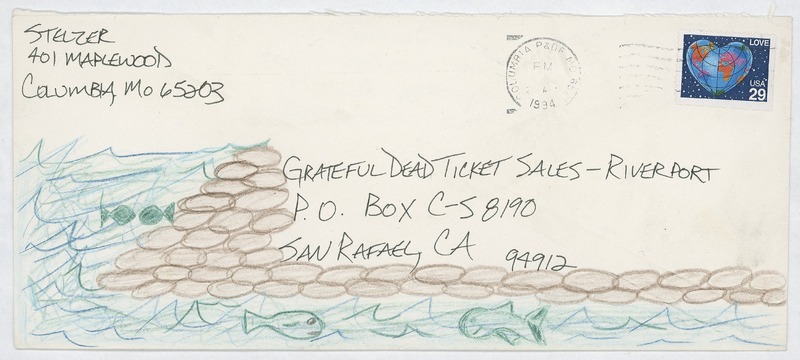 STELZER
401 MAPLEWOOD
COLUMBIA, MO 65203
COLUMBIA P&DF MO
PM
1994
LOVE
USA
29
GRATEFUL DEAD TICKET SALES - RIVERPORT
P.O. BOX C-S 8190
SAN RAFAEL, CA 94912